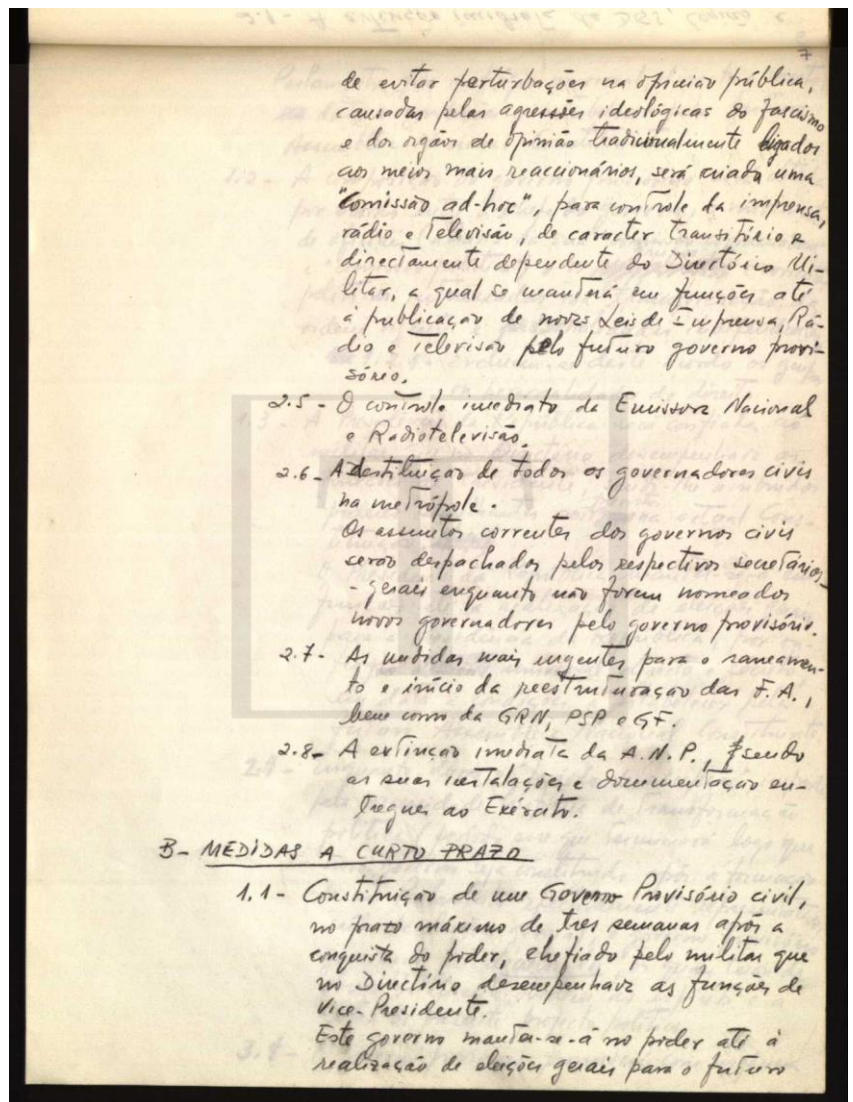 7
de evitar perturbações na opinião pública,
causadas pelas agressões ideológicas do fascismo
e dos orgãos de opinião tradicionalmente ligados
aos meios mais reaccionários, será criada uma
"Comissão ad-hoc", para controle da imprensa,
rádio e Televisão, de caracter transitório e
directamente dependente do Directório Mi-
litar, a qual se manterá em funções até
à publicação de novas Leis de Imprensa, Rá-
dio e Televisão pelo futuro governo provi-
sório.
2.5 - O controle imediato da Emissora Nacional
e Radiotelevisão.
2.6 - A destituição de todos os governadores civis
na metrópole.
Os assuntos correntes dos governos civis
serão despachados pelos respectivos secretários-
- gerais enquanto não forem nomeados
novos governadores pelo governo provisório.
2.7 - As medidas mais urgentes para o saneamen-
to e início da reestruturação das F.A.,
bem como da GRN, PSP e GF.
2.8 - A extinção imediata da A.N.P., sendo
as suas instalações e documentação en-
tregues ao Exército.
B - MEDIDAS A CURTO PRAZO
1.1 - Constituição de um Governo Provisório civil,
no prazo máximo de três semanas após a
conquista do poder, chefiado pelo militar que
no Directório desempenhava as funções de
Vice-Presidente.
Este governo manter-se-á no poder até à
realização de eleições gerais para o futuro